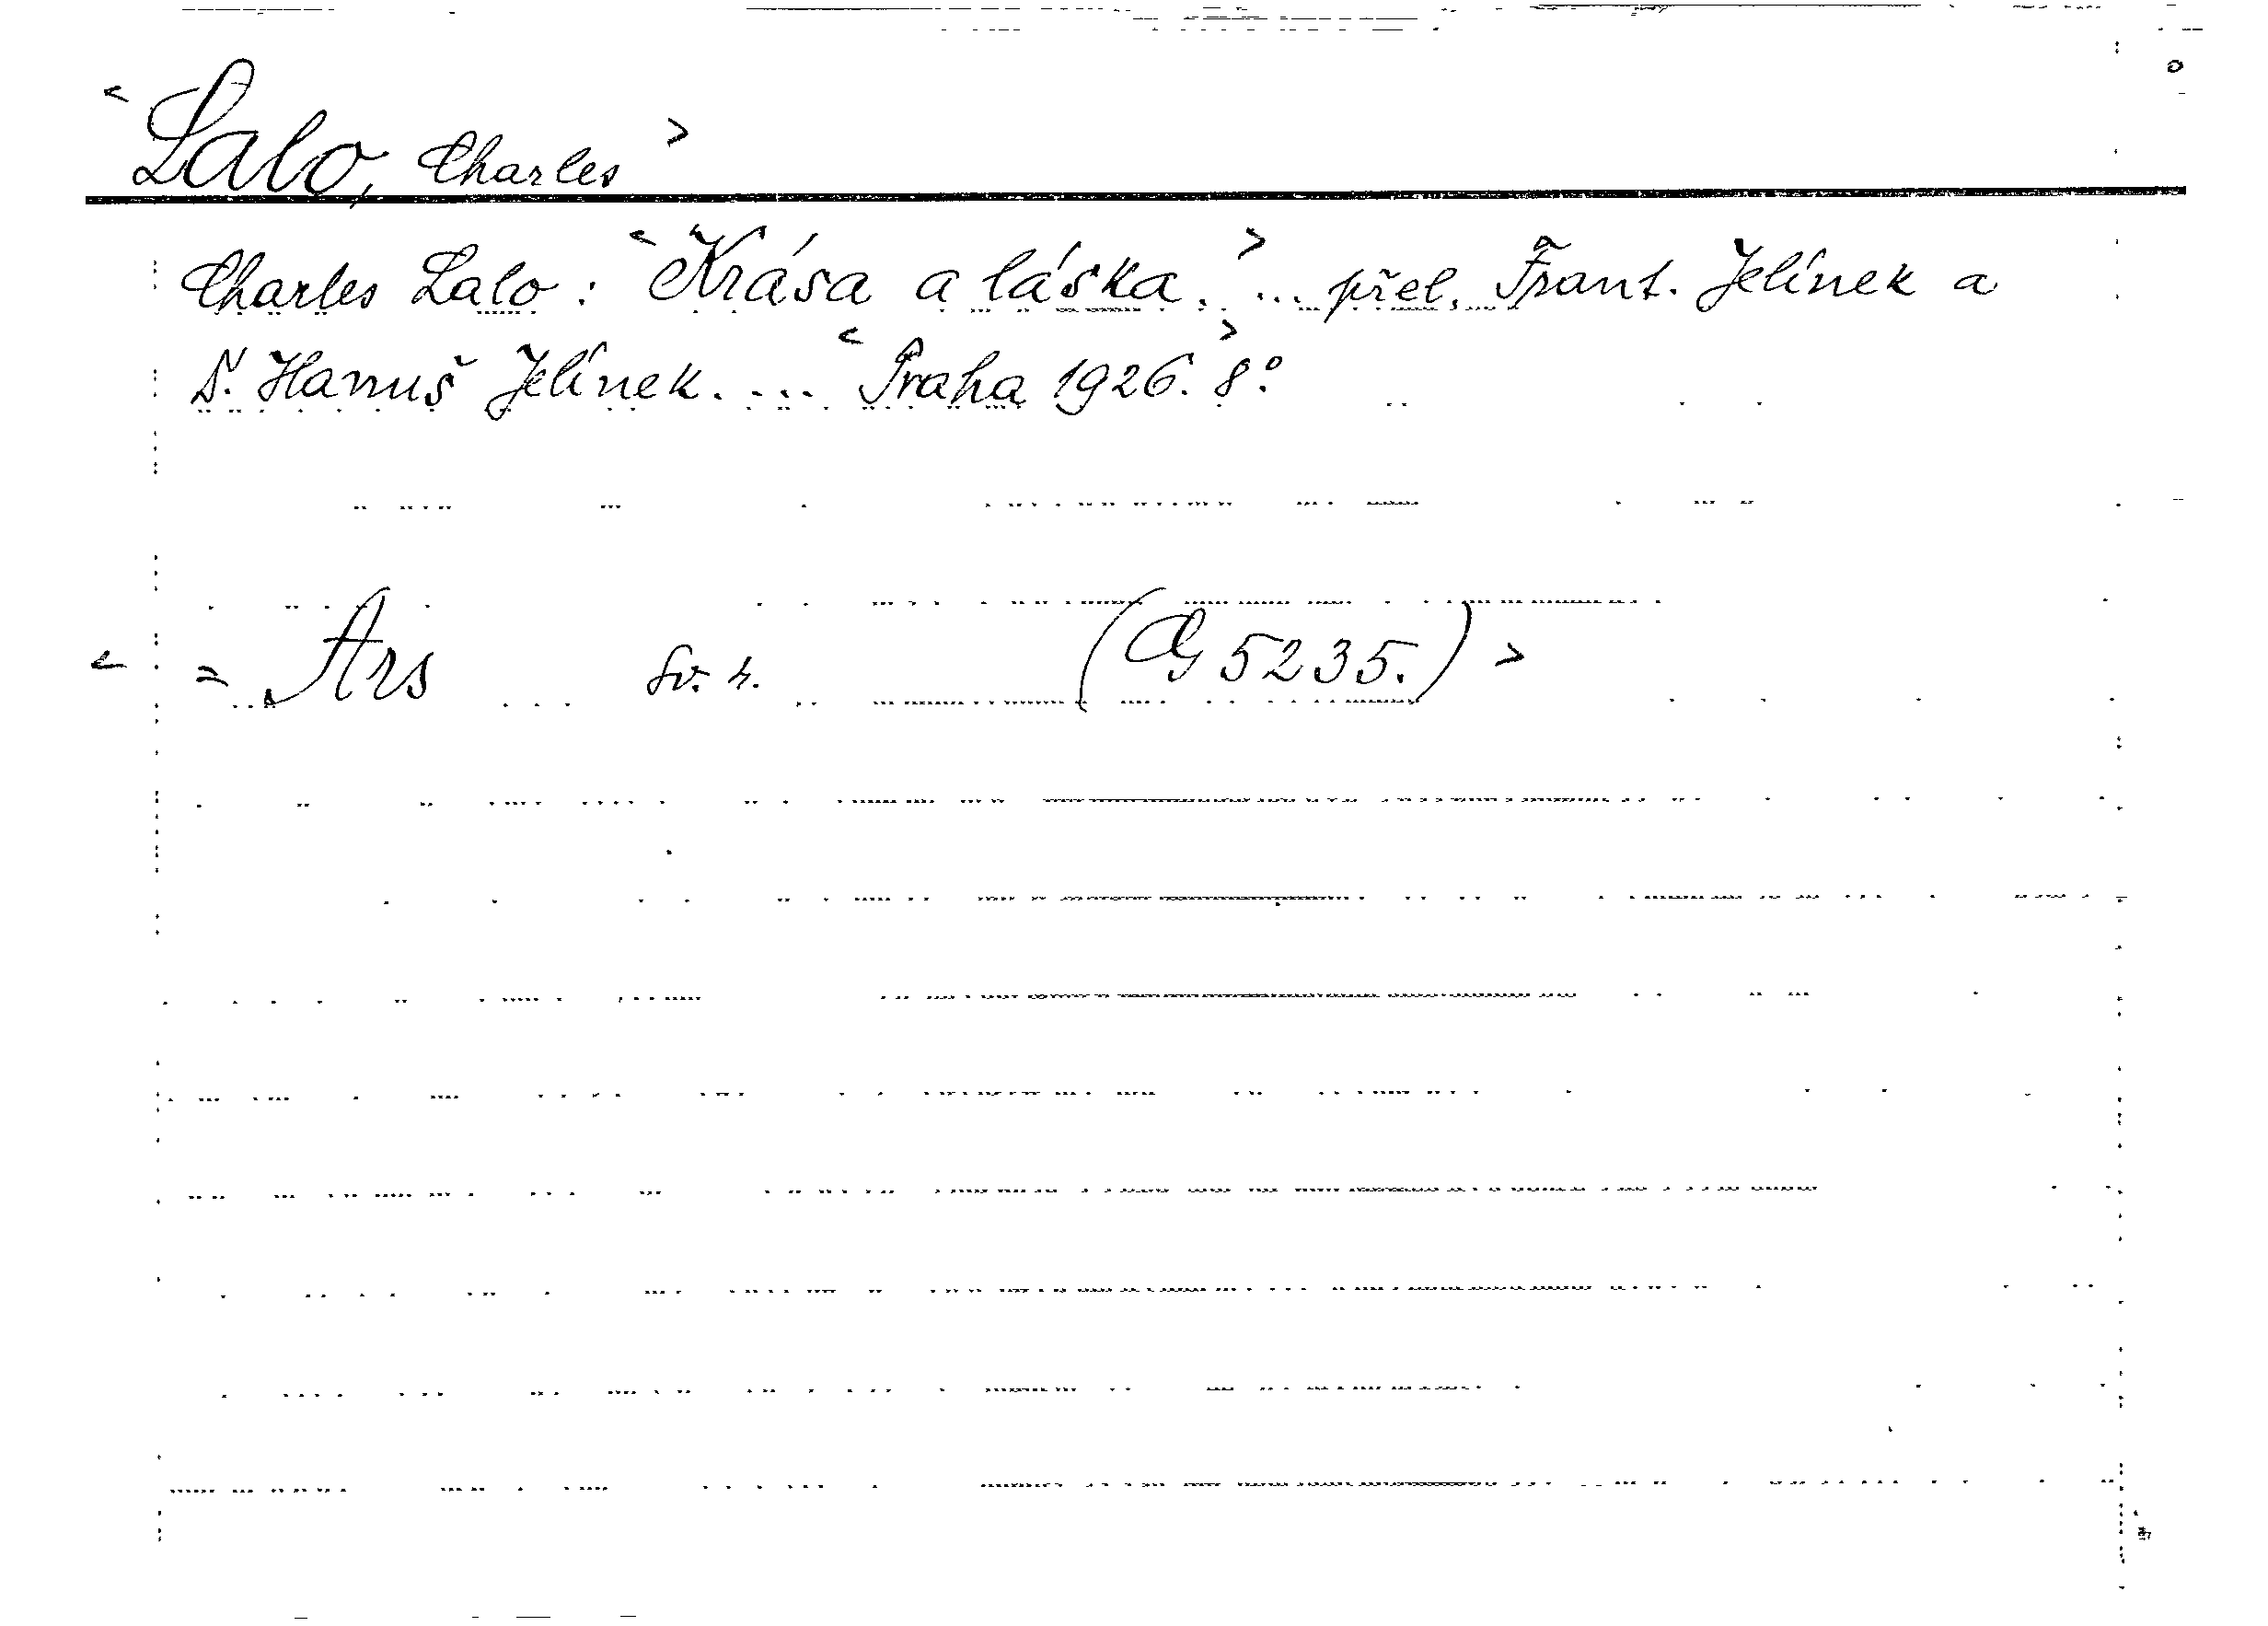 <Lalo, Charles>
Charles Lalo: <Krása a láska.> ... přel. Frant. Jelínek a
D. Hanuš Jelínek. ... <Praha 1926.> 8°.
< = Ars Sv. 4. (G 5235.) >